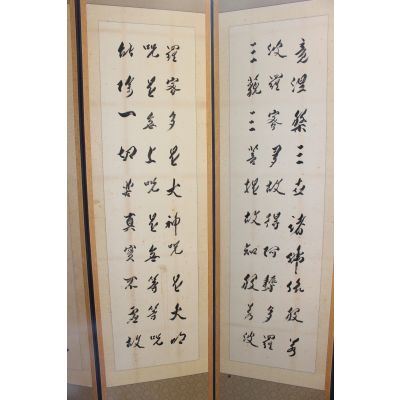 竟涅槃三世諸佛依般若
波羅蜜多故得阿耨多羅
三藐三菩提故知般若波
羅蜜多是大神咒是大明
咒是無上咒是無等等咒
能除一切苦真實不虛故